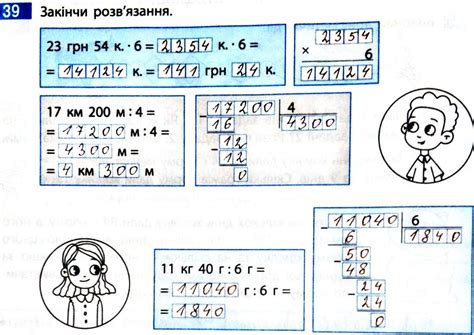 39 Закінчи розв'язання.
23 грн 54 к. · 6 = 2354 к. · 6 =
= 14124 к. = 141 грн 24 к.
2354
×
6
14124
17 км 200 м : 4 =
= 17200 м : 4 =
= 4300 м =
= 4 км 300 м
17200 4
16 4300
12
12
0
11 кг 40 г : 6 г =
= 11040 г : 6 г =
= 1840
11040 6
6 1840
50
48
24
24
0